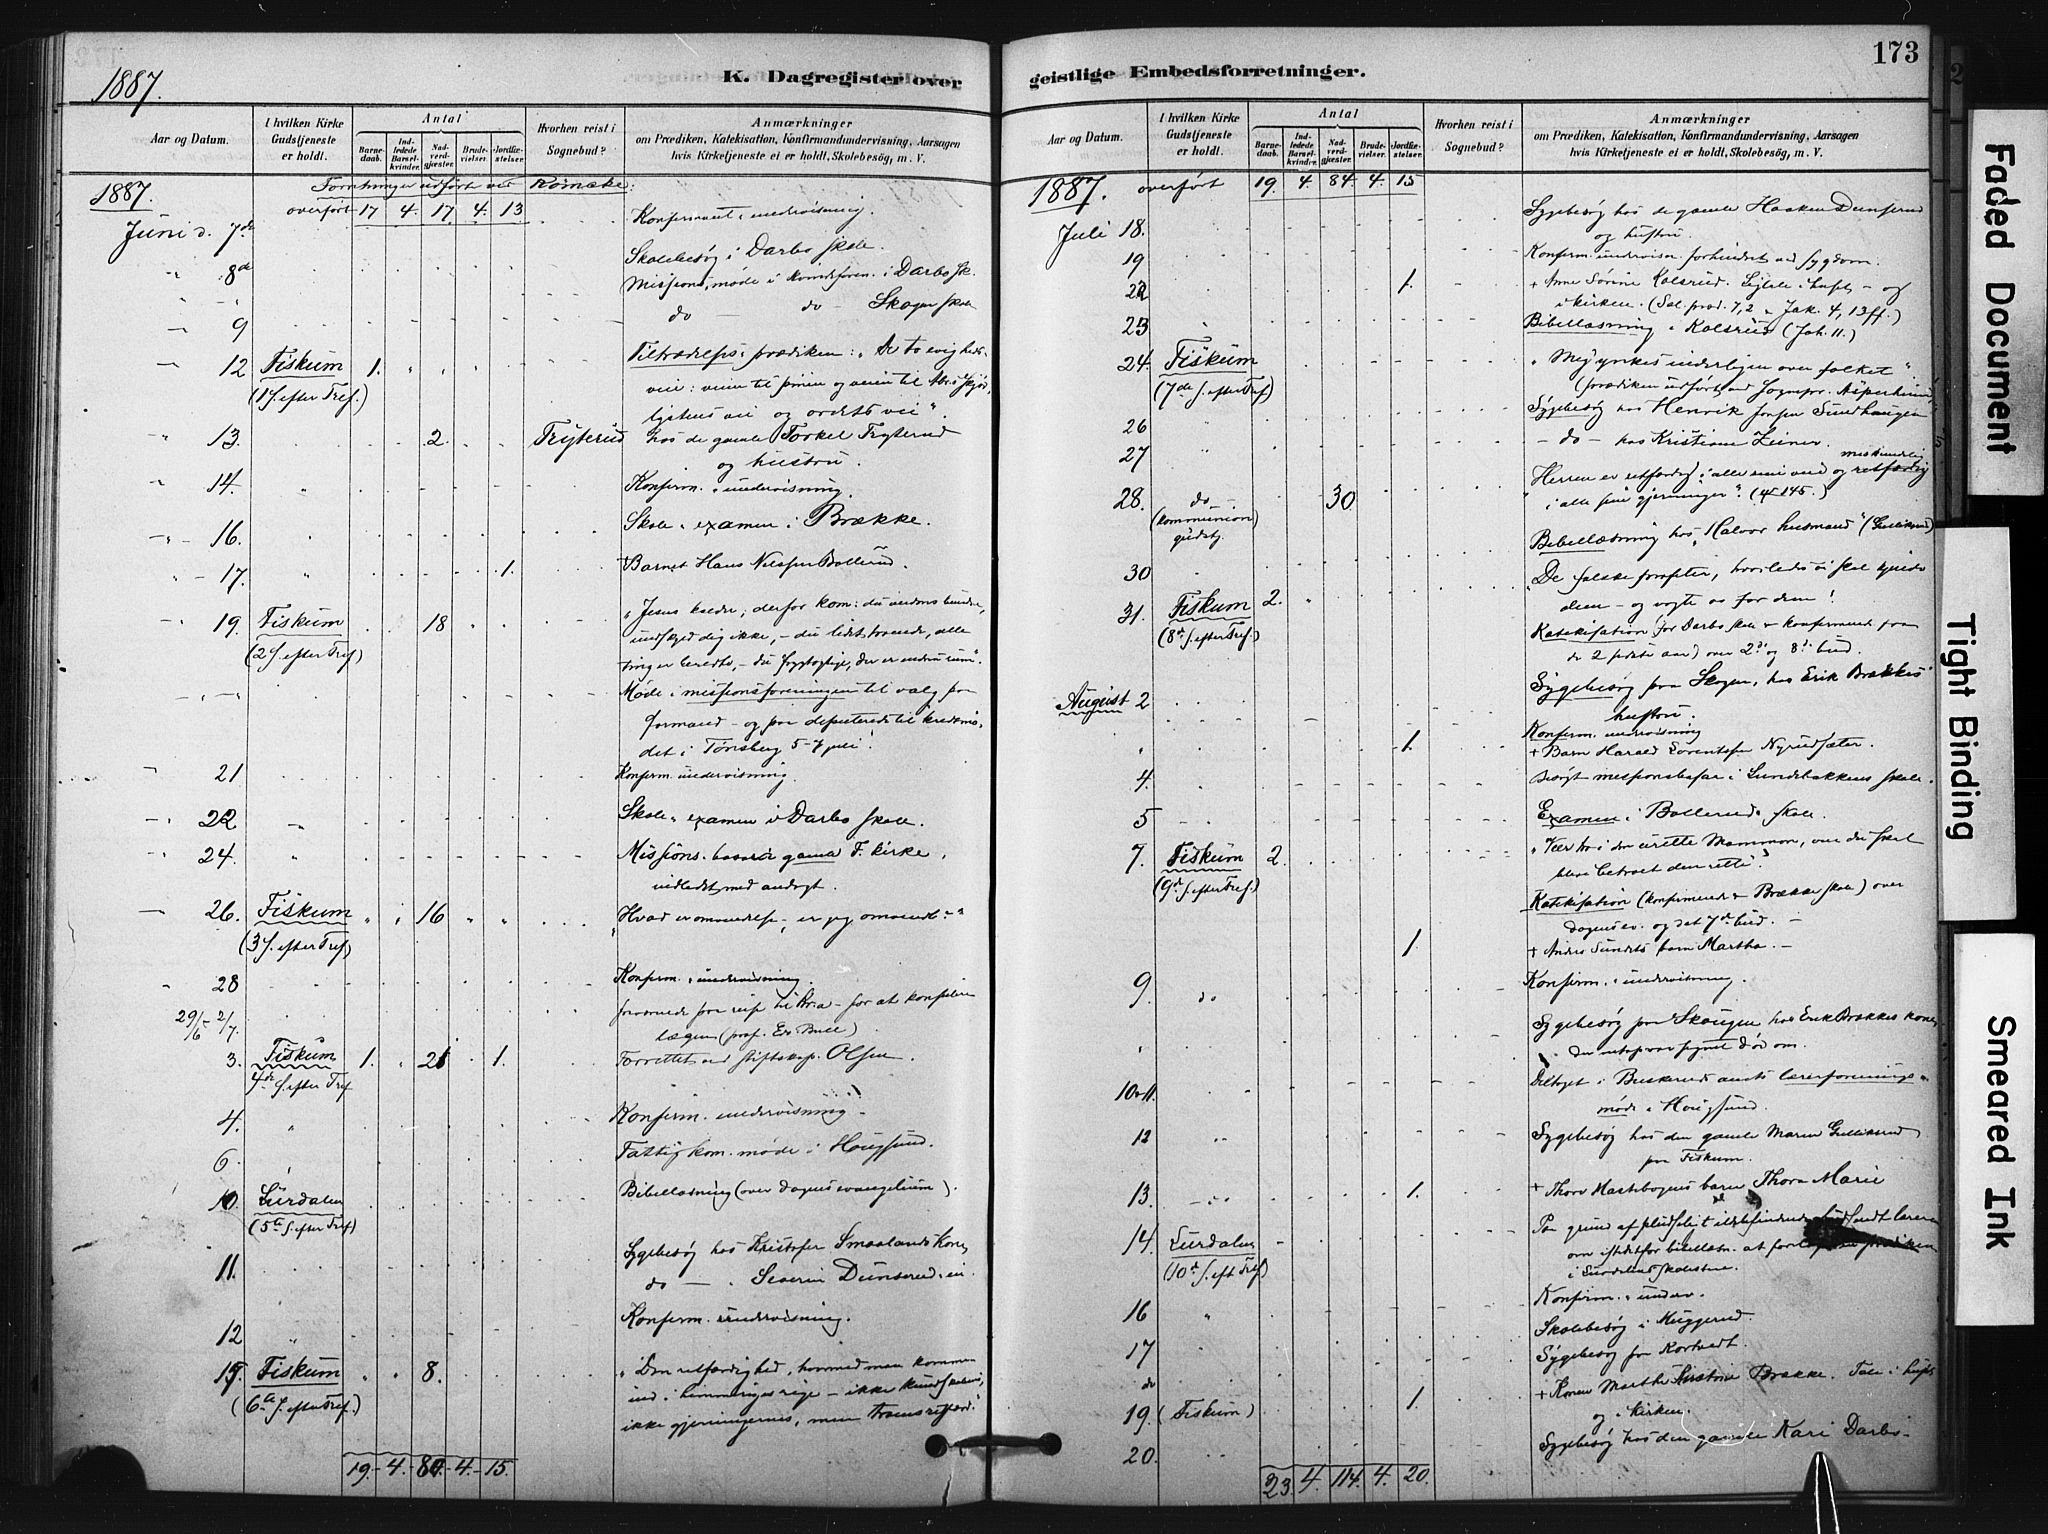 1887.
K. Dagregister over
Aar og Datum.
I hvilken Kirke Gudstjeneste er holdt.
Antal
Barnedaab.
Indledede Barselkvinder.
Nadverdgjester.
Brudevielser.
Jordfæstelser.
Hvorhen reist i Sognebud?
Anmærkninger
om Prædiken, Katekisation, Konfirmandundervisning, Aarsagen
hvis Kirketjeneste ei er holdt, Skolebesøg, m. V.
1887.
overført 17 4. 17. 4. 13
Juni d. 7de Konfirmant. undervisning.
8de Skolebesøg i Darbo skole.
Missions møde i i Darbo sk.
9 do — do — Skogen skole
12 Fiskum 1.
(1 S. efter Tref.)
veie: veien til og veien til
og ordets vei".
13. 2. Fryterud hos de gamle Torkel Fryterud
og hustru.
14. Konfirm. undervisning.
16. Skole examen i Brække.
17. 1. +Barnet Hans Nilssen Bollerud.
19. Fiskum 18 "Jesus kalder; derfor kom: du
(2 S. efter Tref) dig ikke, – du alle
ting er beredte, – du frygtagtige, der er endnu rum".
Møde i missionsforeningen til valg paa
formand – og paa deputerede til kredsmø-
det i Tønsberg 5–7 juli.
21 Konfirm. undervisning.
22. Skole examen i Darbo skole.
24. Missions basar i gamle F. kirke,
indledet med andagt.
26. Fiskum 16 "Hvad er omvendelse, er jeg omvendt?"
(3 S. efter Tref)
28 Konfirm. undervisning.
29/6 2/7. reise til – for at konsulere
lægen (prof. Ed. Bull).
3. Fiskum 1. 21 1. Forrettet ved stiftskap. Olsen.
4de S. efter Tref
4. Konfirm. undervisning.
6. Fattigkom. møde i Hougsund.
10 Lurdalen Bibellæsning (over dagens evangelium).
(5te S. efter Tref)
11. Sygebesøg hos Kristofer Smaalands Kone
do — Severin Dunserud
12 Konfirm. undervisning.
15. Fiskum 8. "Den retfærdighed, hvormed man kommer
(6te S. efter Tref.) ind i himmeriges rige – ikke kundskabens,
ikke gjerningernes, men
19.– 4.– 84.– 4.– 15.
geistlige Embedsforretninger.
173
Aar og Datum.
I hvilken Kirke Gudstjeneste er holdt.
Antal
Barnedaab.
Indledede Barselkvinder.
Nadverdgjester.
Brudevielser.
Jordfæstelser.
Hvorhen reist i Sognebud?
Anmærkninger
om Prædiken, Katekisation, Konfirmandundervisning, Aarsagen
hvis Kirketjeneste ei er holdt, Skolebesøg, m. V.
1887. overført 19. 4. 84. 4. 15
Juli 18. Sygebesøg hos de gamle Haaken Dunserud
og hustru.
19 Konfirm. undervisn. forhindret ved sygdom.
22 1. + Anne Sørine Kolsrud. – og
i kirken. (Sal. præd. 7,2, Jak. 4, 13ff.)
23 Bibellæsning i Kolsrud (Joh. 11.)
24. Fiskum "Mig ynkes inderligen over folket"
(7de S. efter Tref) (prædiken udført ved Sognepr. Asperheim)
26 Sygebesøg hos Henrik Jonsen Sundhaugen
27 – do – hos Kristiane Zeiner.
28. do 30 Herren er retfærdig i alle sine veie og miskundelig
(kommunion gudstj. i alle sine gjerninger". (ψ 145.)
30 Bibellæsning hos "Halvor husmand" (Gulliksrud)
31. Fiskum 2. "De falske profeter, hvorledes vi skal kjende
(8de S. efter Tref.) dem – og vogte os for dem!
Katekisation for Darbo skole + konfirmander fra
de 2 sidste aar) over 2det og 8de bud.
August 2 Sygebesøg paa Skogen, hos Erik Brækkes
hustru.
Konfirm. undervisning
1. + Barn Harald Lorentsen Nyrudsæter.
4. Besøgt missionsbasar i Sundebakkens skole.
5 Examen i Bollerud skole.
7. Fiskum 2. "Vær tro i den urette Mammon, om du skal
(9de S. efter Tref.) blive betroet den rette".
Katekisation (konfirmander + Brække skole) over
dagens ev. og det 7de bud.
1 + Anders Sundets barn Martha. –
9. do Konfirm. undervisning.
Sygebesøg paa Skougen hos Erik Brækkes kone,
10–11. Deltaget i Buskeruds amts lærerforenings-
møde i Hougsund.
12 Sygebesøg hos den gamle Maren Gulliksrud
paa Fiskum.
13. 1. + Thora Marie
14. Lurdalen Paa grund af pludseligt ildebefindende
(10de S. eft Tref) om istedetfor bibellæsn. at
i Lurdalens skolestue.
16 Konfirm. underv.
17 Skolebesøg i Muggerud.
do Sygebesøg for Kortvedt.
19. (Fiskum) 1. + Konen Marthe Kirstine Brække. Tale i huset
og i kirken.
20. Sygebesøg hos den gamle Kari Darbo.
23. 4. 114. 4. 20.
Faded Document
Tight Binding
Smeared Ink